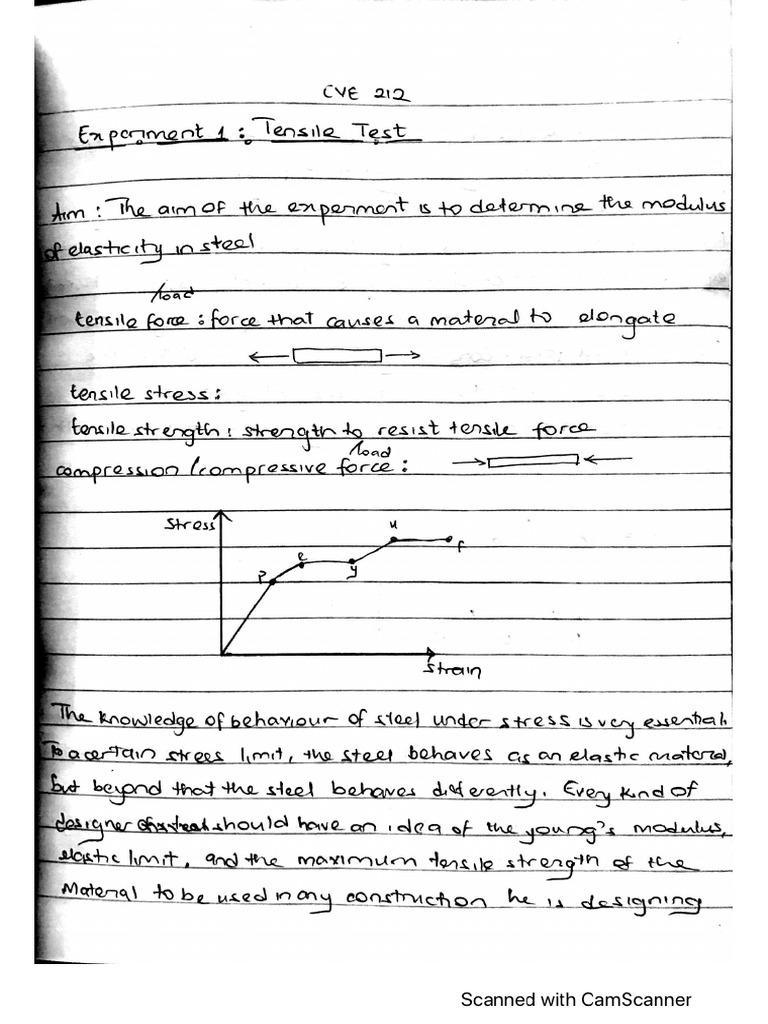 CVE 212
Experiment 1: Tensile Test
Aim: The aim of the experiment is to determine the modulus
of elasticity in steel
/load
tensile force: force that causes a material to elongate
tensile stress:
tensile strength: strength to resist tensile force
/load
compression/compressive force:
Stress
u
f
e
p
y
Strain
The knowledge of behaviour of steel under stress is very essential.
To a certain stress limit, the steel behaves as an elastic material,
but beyond that the steel behaves differently. Every kind of
designer should have an idea of the young's modulus,
elastic limit, and the maximum tensile strength of the
Material to be used in any construction he is designing
Scanned with CamScanner